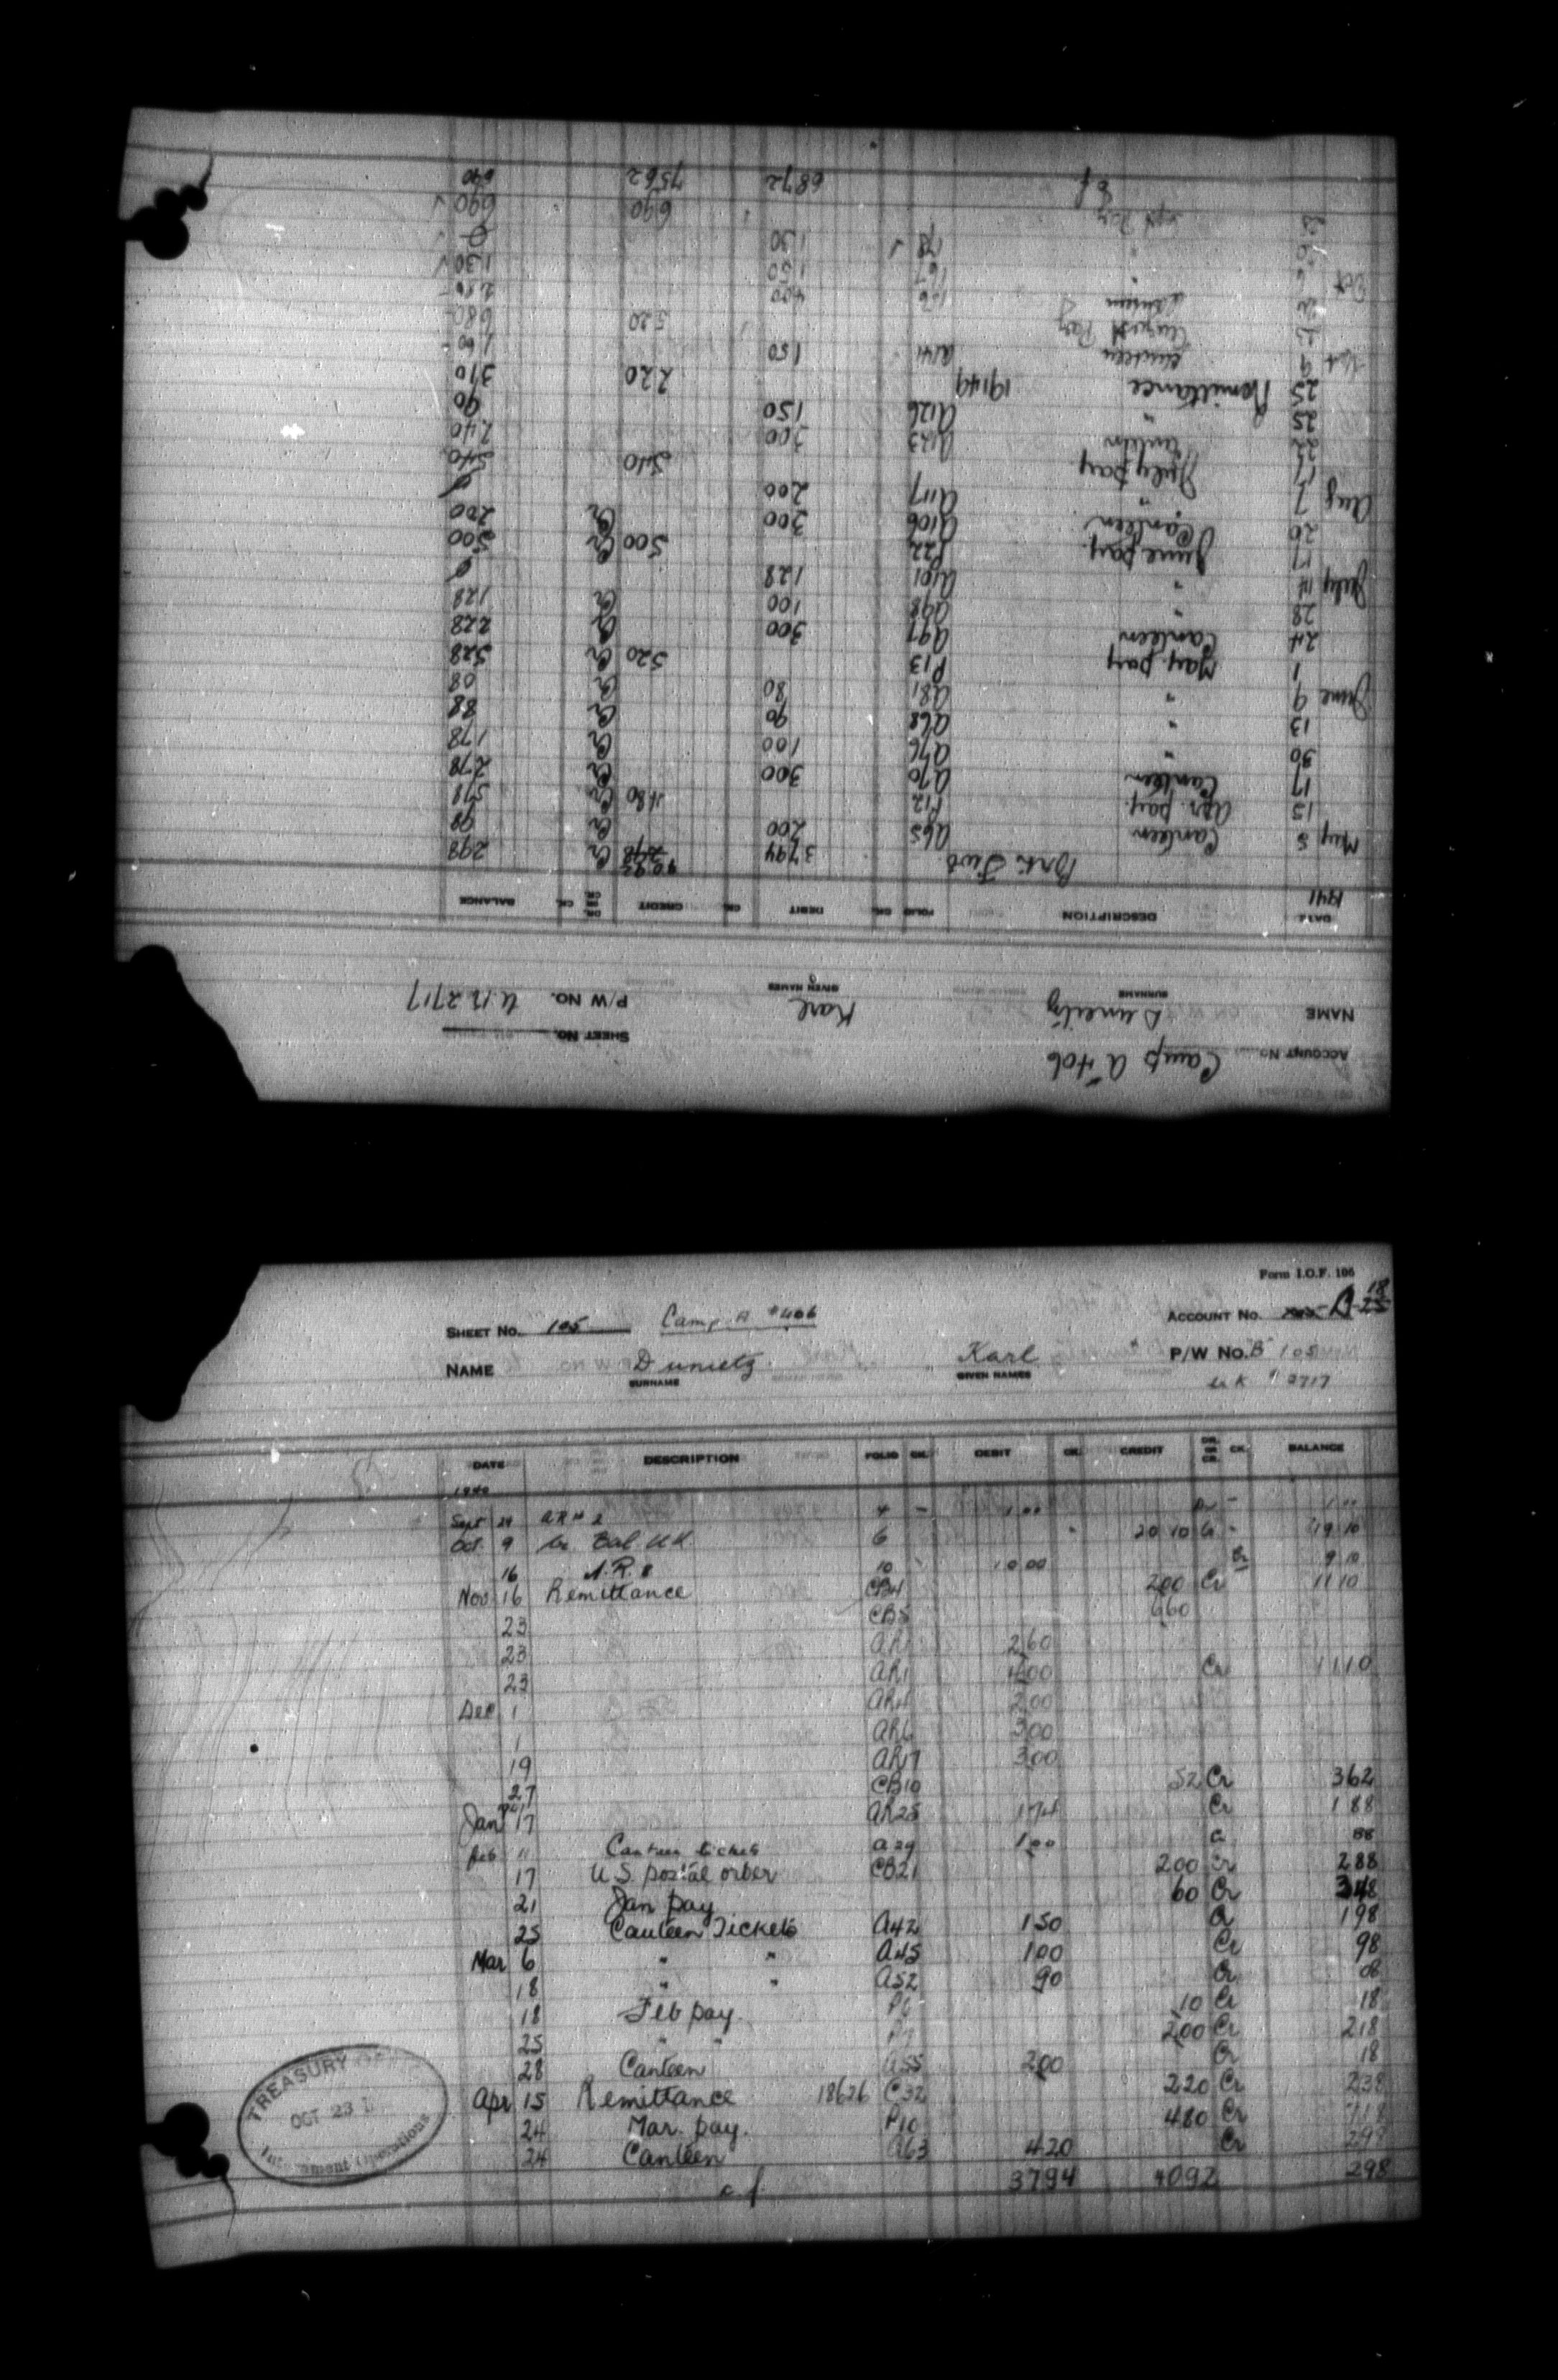 Camp A 406
ACCOUNT No. SHEET No.
NAME Dunietz Karl P/W No. U.K. 2717
SURNAME GIVEN NAMES
DATE DESCRIPTION FOLIO CK. DEBIT CK. CREDIT DR. OR CR. CK. BALANCE
1941
Brt. Fwd. 3794 4092 Cr 298
May 8 Canteen A65 200 Cr 98
15 Apr. pay P12 480 Cr 578
17 Canteen A70 300 Cr 278
30 " A76 100 Cr 178
13 " A68 90 Cr 88
June 9 " A81 80 Cr 08
1 May pay P13 520 Cr 528
24 Canteen A97 300 Cr 228
28 " A98 100 Cr 128
July 14 " A101 128 0
17 June pay P22 500 Cr 500
20 Canteen A106 300 Cr 200
Aug 7 " A117 200 0
17 July pay 540 540
22 Canteen A123 300 240
25 " A126 150 90
25 Remittance 19149 220 310
9 Canteen A141 150 160
August Pay 520 680
20 Canteen 400
Oct 6 " 167 150 130 ✓
" 178 ✓ 130 0
Sept Pay 690 690 ✓
c.f. 6872 7562 690
Form I.O.F. 106
SHEET No. 105 Camp A #406 ACCOUNT No. B 18 25
NAME Dunietz Karl P/W No. B 105
SURNAME GIVEN NAMES U K # 2717
DATE DESCRIPTION FOLIO CK. DEBIT CK. CREDIT DR. OR CR. CK. BALANCE
1940
Sept 24 AR # 2 4 - 1 00 Dr - 1 00
Oct. 9 Cr Bal UK 6 20 10 Cr - 19 10
16 A.R. 8 10 10 00 Cr 9 10
Nov 16 Remittance CB4 200 Cr 1110
23 CB5 660
23 AR1 260
23 AR1 400 Cr 1110
Dec 1 AR4 200
1 AR6 300
19 AR17 300
27 CB10 52 Cr 362
Jan 17 AR25 174 Cr 188
Feb 11 Canteen tickets A29 100 Cr 88
17 U.S. postal order CB21 200 Cr 288
21 Jan pay 60 Cr 348
25 Canteen Tickets A42 150 Cr 198
Mar 6 " " A45 100 Cr 98
18 " " A52 90 Cr 08
18 Feb pay. P6 10 Cr 18
25 " " P7 200 Cr 218
28 Canteen A55 200 Cr 18
Apr 15 Remittance 18626 C32 220 Cr 238
24 Mar. pay. P10 480 Cr 718
24 Canteen A63 420 Cr 298
c.f. 3794 4092 298
TREASURY
OCT 23
Internment Operations